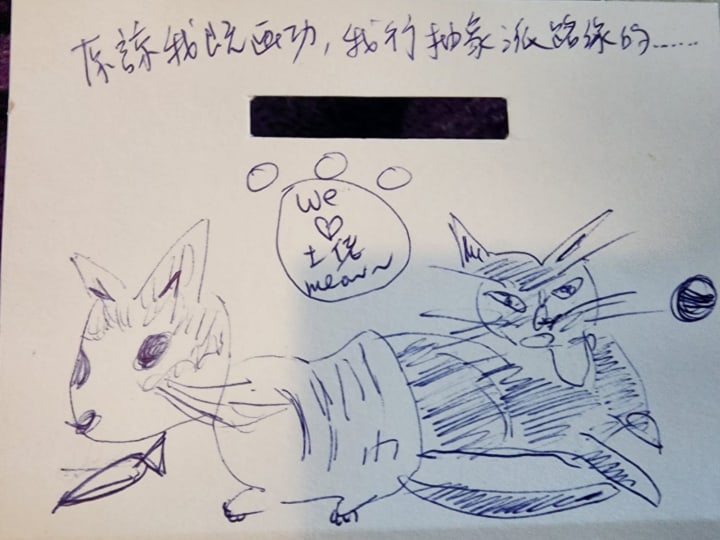 原諒我既画功，我行抽象派路線的……
We
♡
土佬
meow~